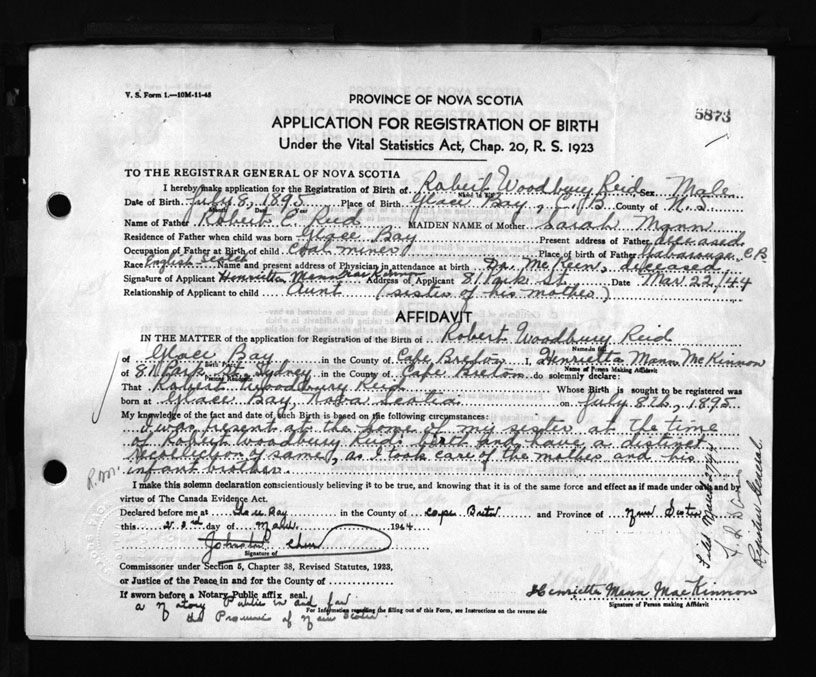 V. S. Form 1.—10M-11-43
5873
PROVINCE OF NOVA SCOTIA
APPLICATION FOR REGISTRATION OF BIRTH
Under the Vital Statistics Act, Chap. 20, R. S. 1923
TO THE REGISTRAR GENERAL OF NOVA SCOTIA
I hereby make application for the Registration of Birth of Robert Woodbury Reid Sex Male
Date of Birth July 8, 1895 Place of Birth Glace Bay, C. B. County of N. S
Name of Father Robert C. Reid MAIDEN NAME of Mother Sarah Mann
Residence of Father when child was born Glace Bay Present address of Father deceased
Occupation of Father at Birth of child Coal miner Place of birth of Father Gabarouse, C B
Race English Scotch Name and present address of Physician in attendance at birth Dr. McKeen, deceased
Signature of Applicant Henrietta Mann MacKinnon Address of Applicant 81 Park St. Date Mar 22/44
Relationship of Applicant to child Aunt (sister of his mother)
AFFIDAVIT
IN THE MATTER of the application for Registration of the Birth of Robert Woodbury Reid
Name in full
of Glace Bay in the County of Cape Breton I, Henrietta Mann McKinnon
Birth Place Name of Person Making Affidavit
of 81 Park St. Sydney in the County of Cape Breton do solemnly declare:
Present Residence
That Robert Woodbury Reid Whose Birth is sought to be registered was
born at Glace Bay, Nova Scotia on July 8th, 1895
My knowledge of the fact and date of such Birth is based on the following circumstances:
I was present at the home of my sister at the time
of Robert Woodbury Reid's birth and have a distinct
recollection of same, as I took care of the mother and his
infant brother.
R.M.
I make this solemn declaration conscientiously believing it to be true, and knowing that it is of the same force and effect as if made under oath and by
virtue of The Canada Evidence Act.
Declared before me at Glace Bay in the County of Cape Breton and Province of Nova Scotia
this 22nd day of March 1944
Signature of
Commissioner under Section 5, Chapter 38, Revised Statutes, 1923,
or Justice of the Peace in and for the County of
If sworn before a Notary Public affix seal.
a Notary Public in and for
the Province of Nova Scotia
For Information regarding the filling out of this Form, see Instructions on the reverse side
Henrietta Mann MacKinnon
Signature of Person making Affidavit
Filed March 27/44
Registrar General